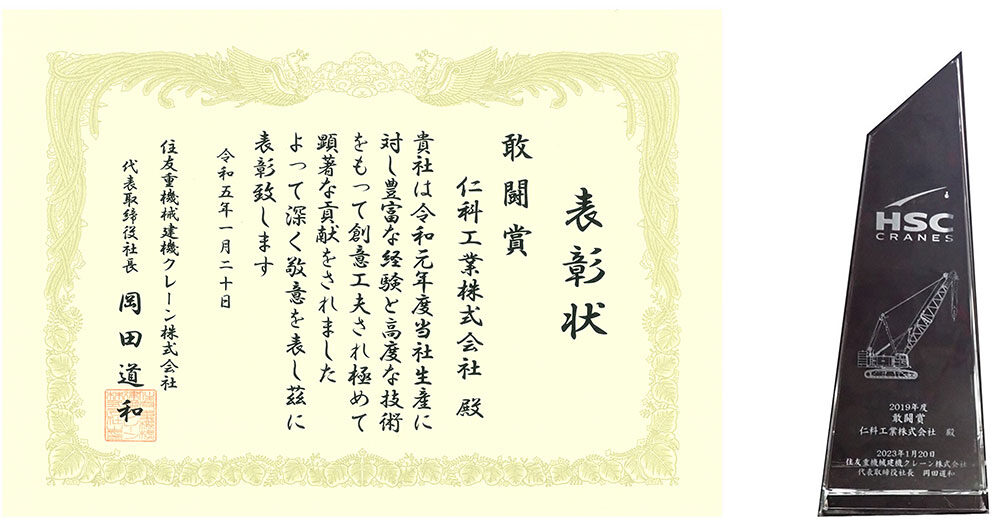 表彰状
敢闘賞
仁科工業株式会社 殿
貴社は令和元年度当社生産に
対し豊富な経験と高度な技術
をもって創意工夫され極めて
顕著な貢献をされました
よって深く敬意を表し茲に
表彰致します
令和五年一月二十日
住友重機械建機クレーン株式会社
代表取締役社長 岡田道和
HSC
CRANES
2019年度
敢闘賞
仁科工業株式会社 殿
2023年1月20日
住友重機械建機クレーン株式会社
代表取締役社長 岡田道和